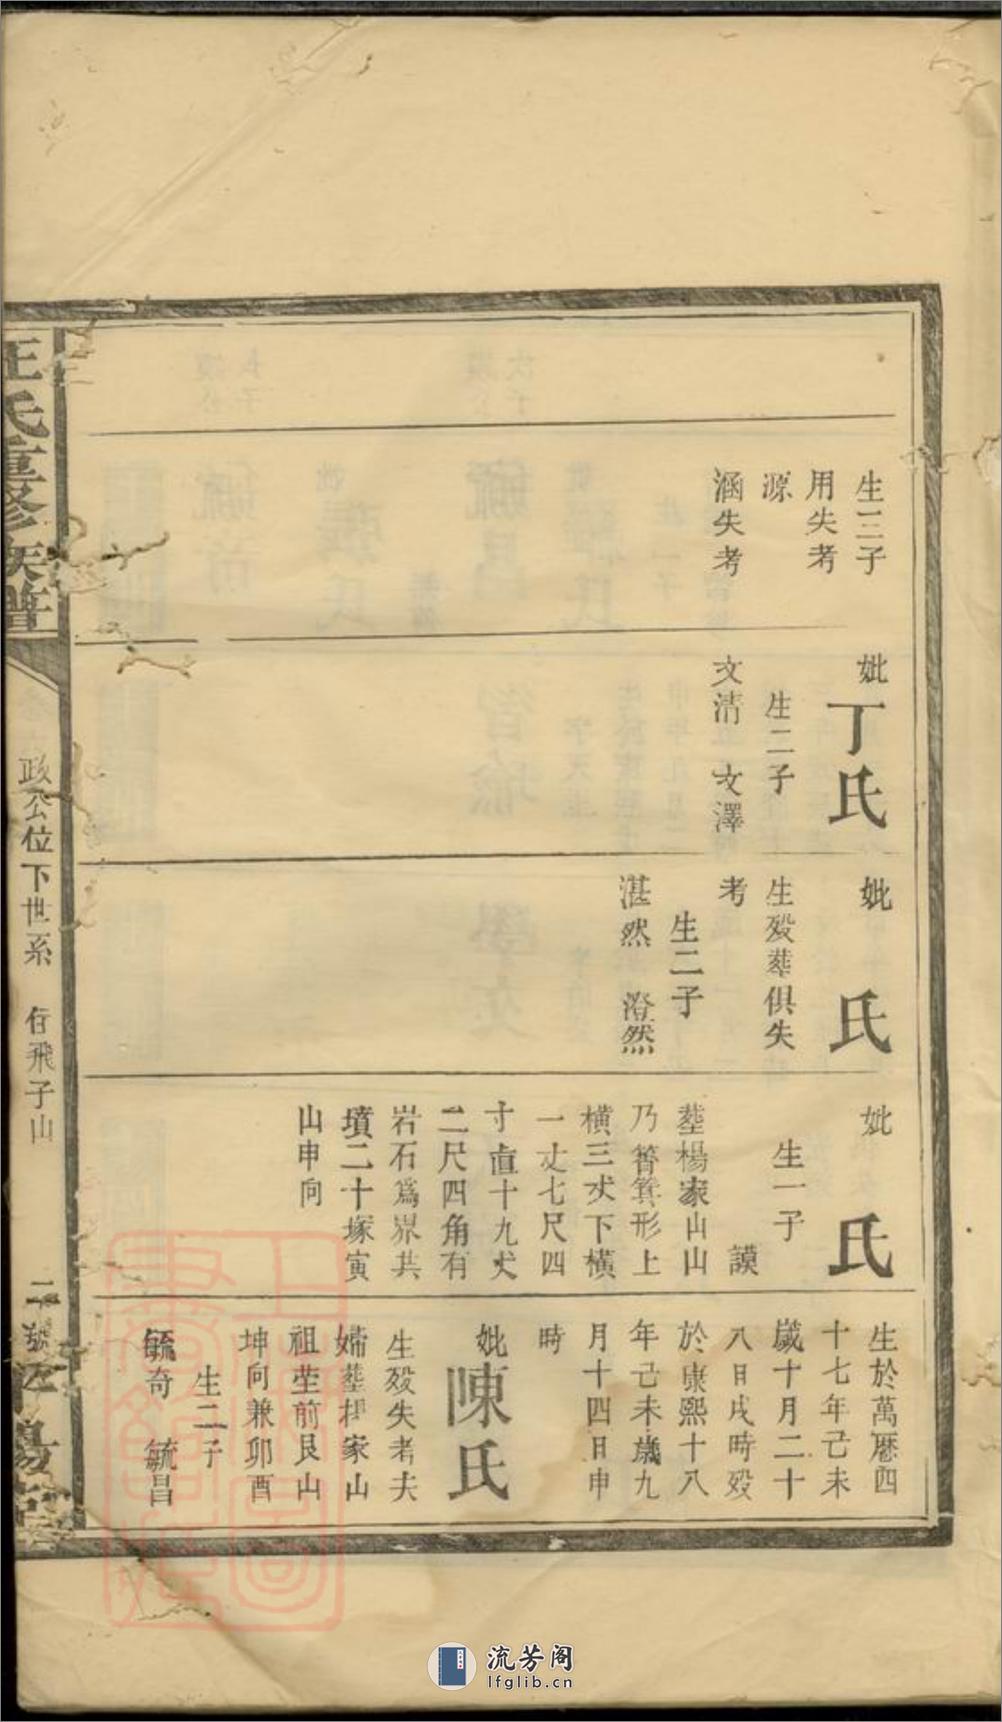 生三子
用失考
源
涵失考
妣
丁氏
生二子
文清 文澤
妣 氏
生殁葬俱失
考
生二子
湛然 澄然
妣 氏
生一子
謨
塟楊家山山
乃簷箕形上
橫三丈下橫
一丈七尺四
寸直十九丈
二尺四角有
岩石爲界共
墳二十塚寅
山申向
生於萬曆四
十七年己未
歲十月二十
八日戌時殁
於康熙十八
年己未歲九
月十四日申
時
妣陳氏
生殁失考夫
婦塟楊家山
祖塋前艮山
坤向兼卯酉
生二子
毓奇 毓昌
汪氏重修族譜
政公位下世系 行飛子山
二
流芳阁
lfglib.cn